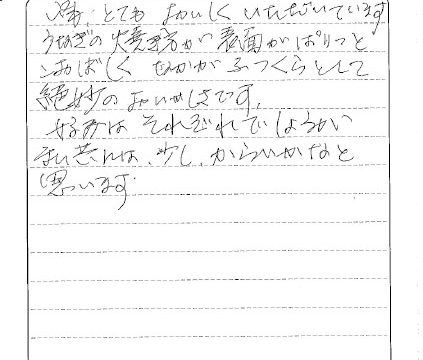 時、とても おいしく いただいています
うなぎの 焼き方が 表面が ぱりっと
こおばしく なかが ふっくらとして
絶妙の おいしさです。
好みは それぞれでしょうが
、少し、からいかなと
思います